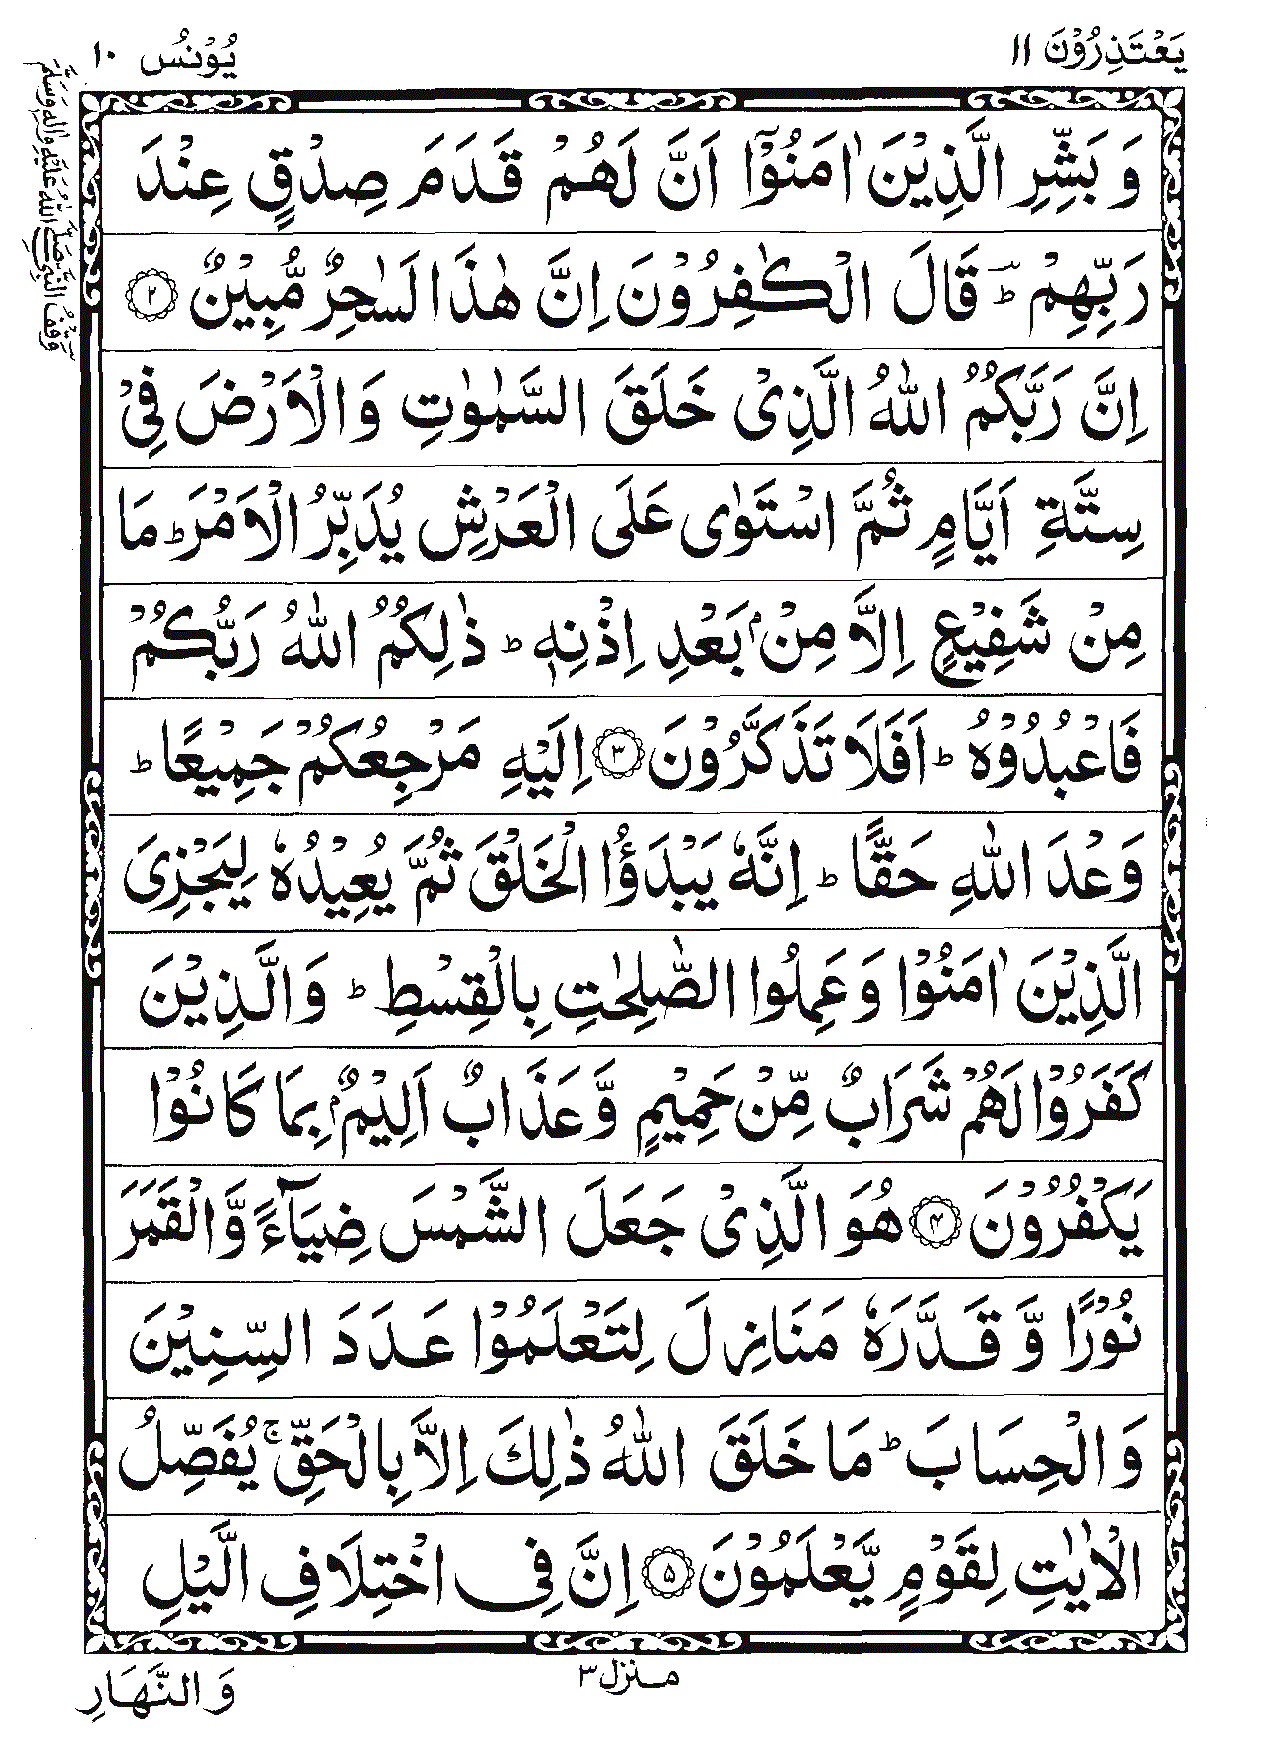 يَعْتَذِرُوْنَ ۱۱
يُوْنُس ۱۰
وَقْفُ النَّبِیِّ صَلَّی اللهُ عَلَيْهِ وَاٰلِهٖ وَسَلَّمَ
وَ بَشِّرِ الَّذِيْنَ اٰمَنُوْۤا اَنَّ لَهُمْ قَدَمَ صِدْقٍ عِنْدَ
رَبِّهِمْ ؕ قَالَ الْكٰفِرُوْنَ اِنَّ هٰذَا لَسٰحِرٌ مُّبِيْنٌ ۝۲
اِنَّ رَبَّكُمُ اللّٰهُ الَّذِیْ خَلَقَ السَّمٰوٰتِ وَالْاَرْضَ فِیْ
سِتَّةِ اَيَّامٍ ثُمَّ اسْتَوٰى عَلَى الْعَرْشِ يُدَبِّرُ الْاَمْرَ ؕ مَا
مِنْ شَفِيْعٍ اِلَّا مِنْۢ بَعْدِ اِذْنِهٖ ؕ ذٰلِكُمُ اللّٰهُ رَبُّكُمْ
فَاعْبُدُوْهُ ؕ اَفَلَا تَذَكَّرُوْنَ ۝۳ اِلَيْهِ مَرْجِعُكُمْ جَمِيْعًا ؕ
وَعْدَ اللّٰهِ حَقًّا ؕ اِنَّهٗ يَبْدَؤُا الْخَلْقَ ثُمَّ يُعِيْدُهٗ لِيَجْزِیَ
الَّذِيْنَ اٰمَنُوْا وَعَمِلُوا الصّٰلِحٰتِ بِالْقِسْطِ ؕ وَالَّذِيْنَ
كَفَرُوْا لَهُمْ شَرَابٌ مِّنْ حَمِيْمٍ وَّعَذَابٌ اَلِيْمٌۢ بِمَا كَانُوْا
يَكْفُرُوْنَ ۝۴ هُوَ الَّذِیْ جَعَلَ الشَّمْسَ ضِيَآءً وَّالْقَمَرَ
نُوْرًا وَّ قَدَّرَهٗ مَنَازِلَ لِتَعْلَمُوْا عَدَدَ السِّنِيْنَ
وَالْحِسَابَ ؕ مَا خَلَقَ اللّٰهُ ذٰلِكَ اِلَّا بِالْحَقِّ ۚ يُفَصِّلُ
الْاٰيٰتِ لِقَوْمٍ يَّعْلَمُوْنَ ۝۵ اِنَّ فِی اخْتِلَافِ الَّيْلِ
منزل ۳
وَ النَّهَارِ